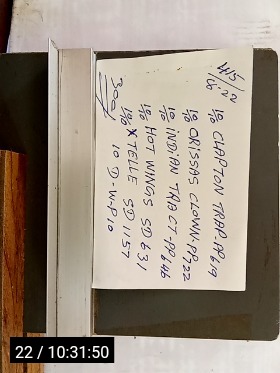 4/5
6.22
10/10 CHAPTON TRIAP-PP 619
10/10 ORISSAS CLOWN-PP 722
10/10 INDIAN TRACT-PP 646
10/10 HOT WINGS SD 631
10/10 X TELLE SD 1157
10 D-W-P 10
300/
22 / 10:31:50